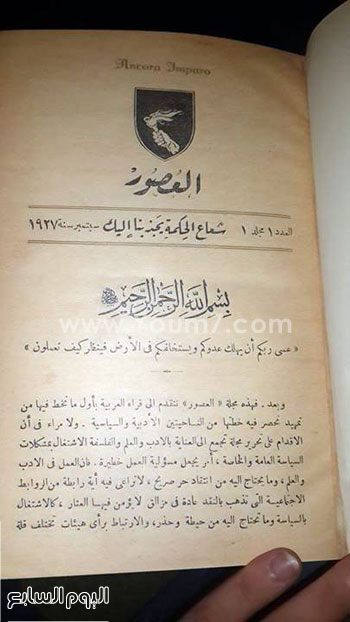 Ancora Imparo
العصور
العدد ١ مجلد ١ شعاع الحكمة يجذبنا إليك سبتمبر سنة ١٩٢٧
بسم الله الرحمن الرحيم
« عسى ربكم أن يهلك عدوكم ويستخلفكم فى الأرض فينظر كيف تعملون »
youm7.com
وبعد . فهذه مجلة « العصور » نتقدم الى قراء العربية بأول ما نخط فيها من
تمهيد نحصر فيه خطتها من الناحيتين الادبية والسياسية . ولا مراء فى أن
الاقدام على تحرير مجلة تجمع الى العناية بالادب والعلم والفلسفة الاشتغال بمشكلات
السياسة العامة والخاصة ، أمر يجمل مسؤلية العمل خطيرة . فان العمل فى الادب
والعلم ، وما يحتاج اليه من انتقاد حر صريح ، لا تراعى فيه أية رابطة من الروابط
الاجتماعية التى تذهب بالنقد عادة فى مزالق لا يؤمن فيها العثار ، كالاشتغال
بالسياسة وما تحتاج اليه من حيطة وحذر ، والارتباط برأى هيئات تختلف قلة
اليوم السابع